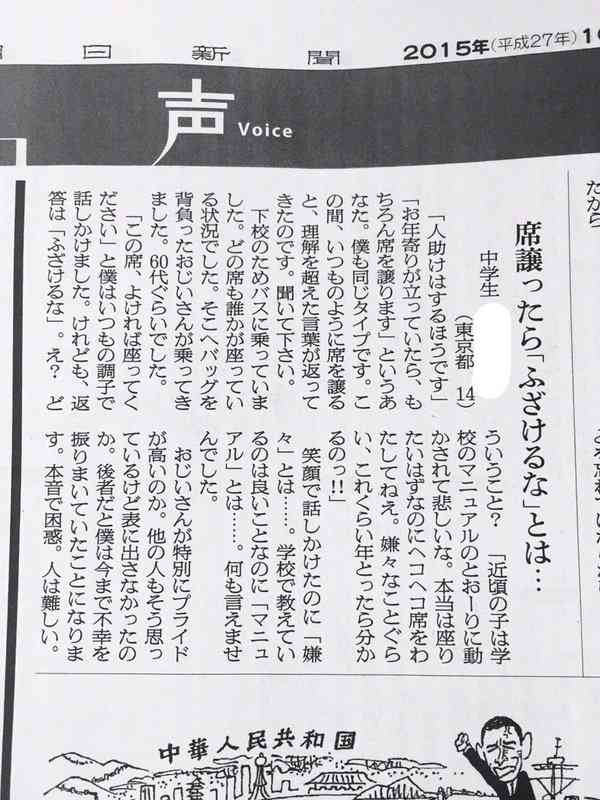 日新聞
2015年(平成27年)
声
Voice
席譲ったら「ふざけるな」とは…
中学生
(東京都 14)
「人助けはするほうです」
「お年寄りが立っていたら、も
ちろん席を譲ります」というあ
なた。僕も同じタイプです。こ
の間、いつものように席を譲る
と、理解を超えた言葉が返って
きたのです。聞いて下さい。
下校のためバスに乗っていま
した。どの席も誰かが座ってい
る状況でした。そこへバッグを
背負ったおじいさんが乗ってき
ました。60代ぐらいでした。
「この席、よければ座ってく
ださい」と僕はいつもの調子で
話しかけました。けれども、返
答は「ふざけるな」。え? ど
ういうこと? 「近頃の子は学
校のマニュアルのとおーりに動
かされて悲しいな。本当は座り
たいはずなのにヘコヘコ席をわ
たしてねえ。嫌々なことぐら
い、これくらい年とったら分か
るのっ!!」
笑顔で話しかけたのに「嫌
々」とは……。学校で教えてい
るのは良いことなのに「マニュ
アル」とは……。何も言えませ
んでした。
おじいさんが特別にプライド
が高いのか。他の人もそう思っ
ているけど表に出さなかったの
か。後者だと僕は今まで不幸を
振りまいていたことになりま
す。本音で困惑。人は難しい。
中華人民共和国